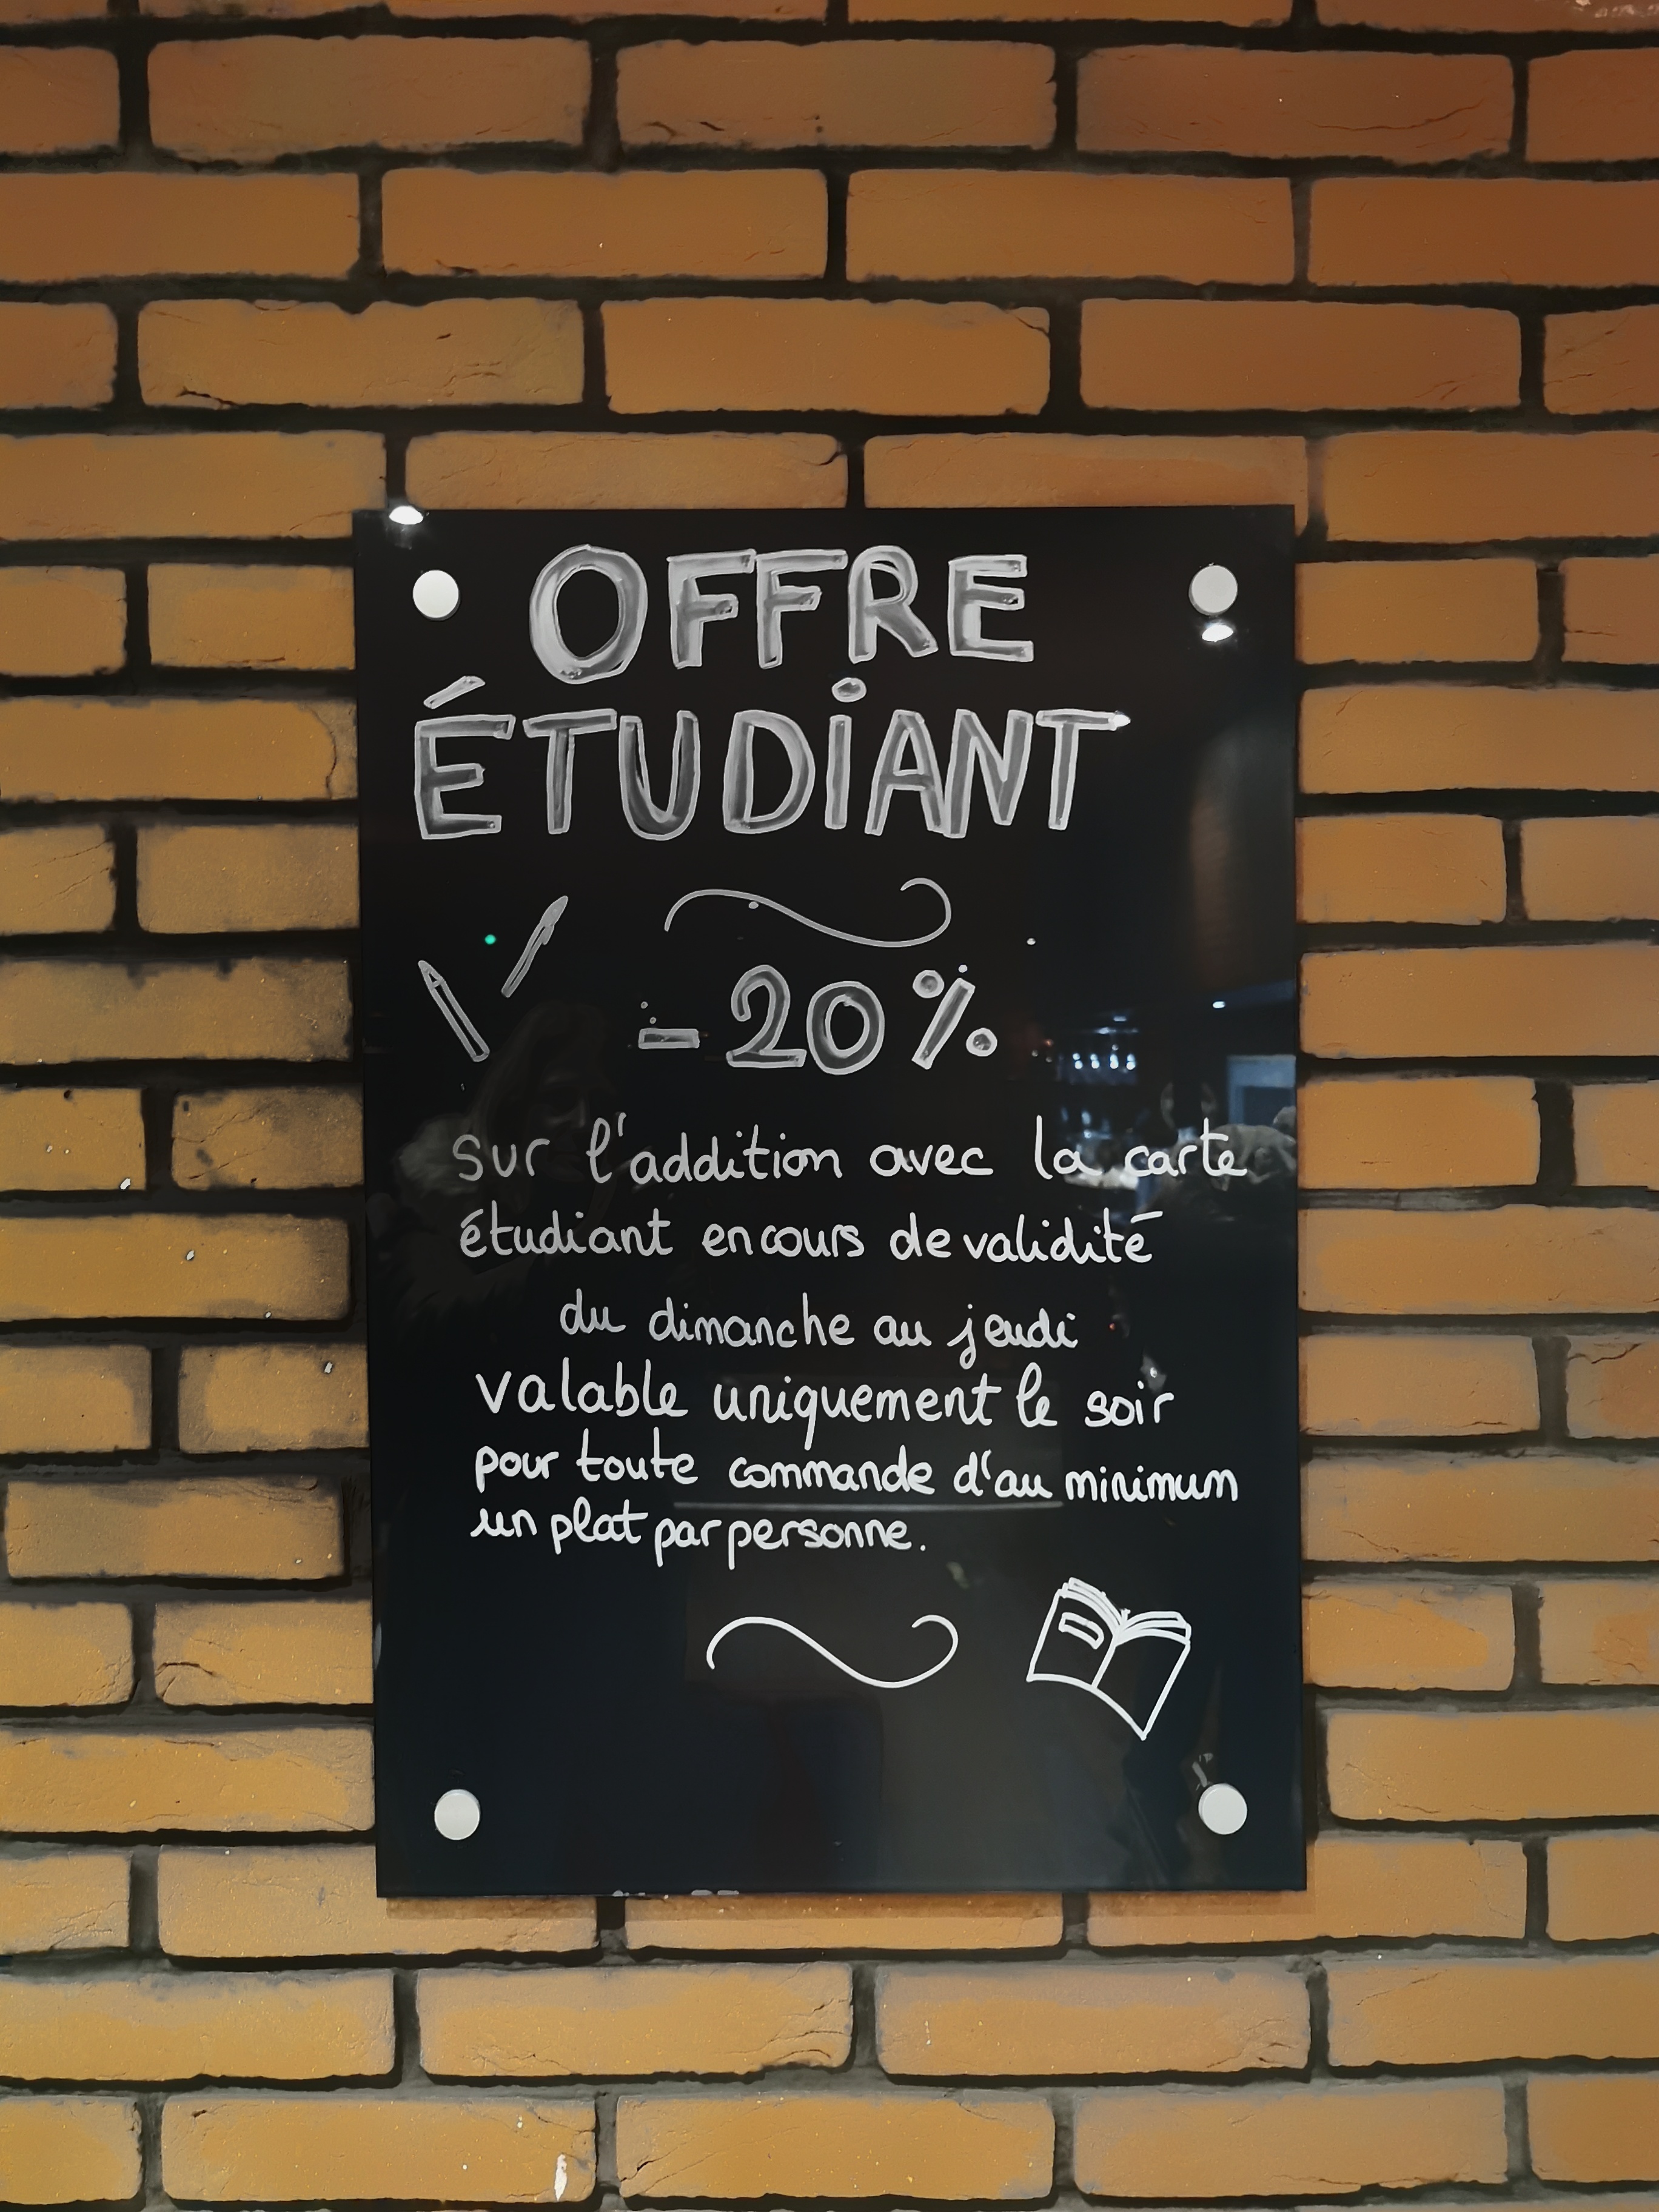 OFFRE
ÉTUDiANT
-20%
Sur l'addition avec la carte
étudiant en cours de validité
du dimanche au jeudi
valable uniquement le soir
pour toute commande d'au minimum
un plat par personne.